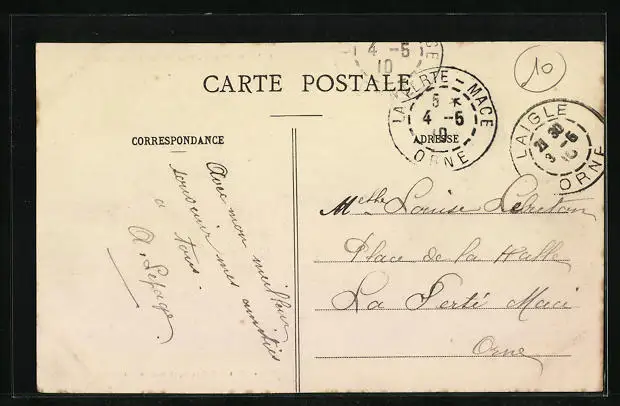 CARTE POSTALE
CORRESPONDANCE
Avec mon meilleur
souvenir mes amitiés
à
tous.
A. Lepage
ADRESSE
Melle Louise Lebreton
Place de la Halle
La Ferté Macé
Orne
4 - 5
10
LA FERTE - MACE
5 *
4 - 5
10
ORNE
LAIGLE
21 30
3 - 5
10
ORNE
10